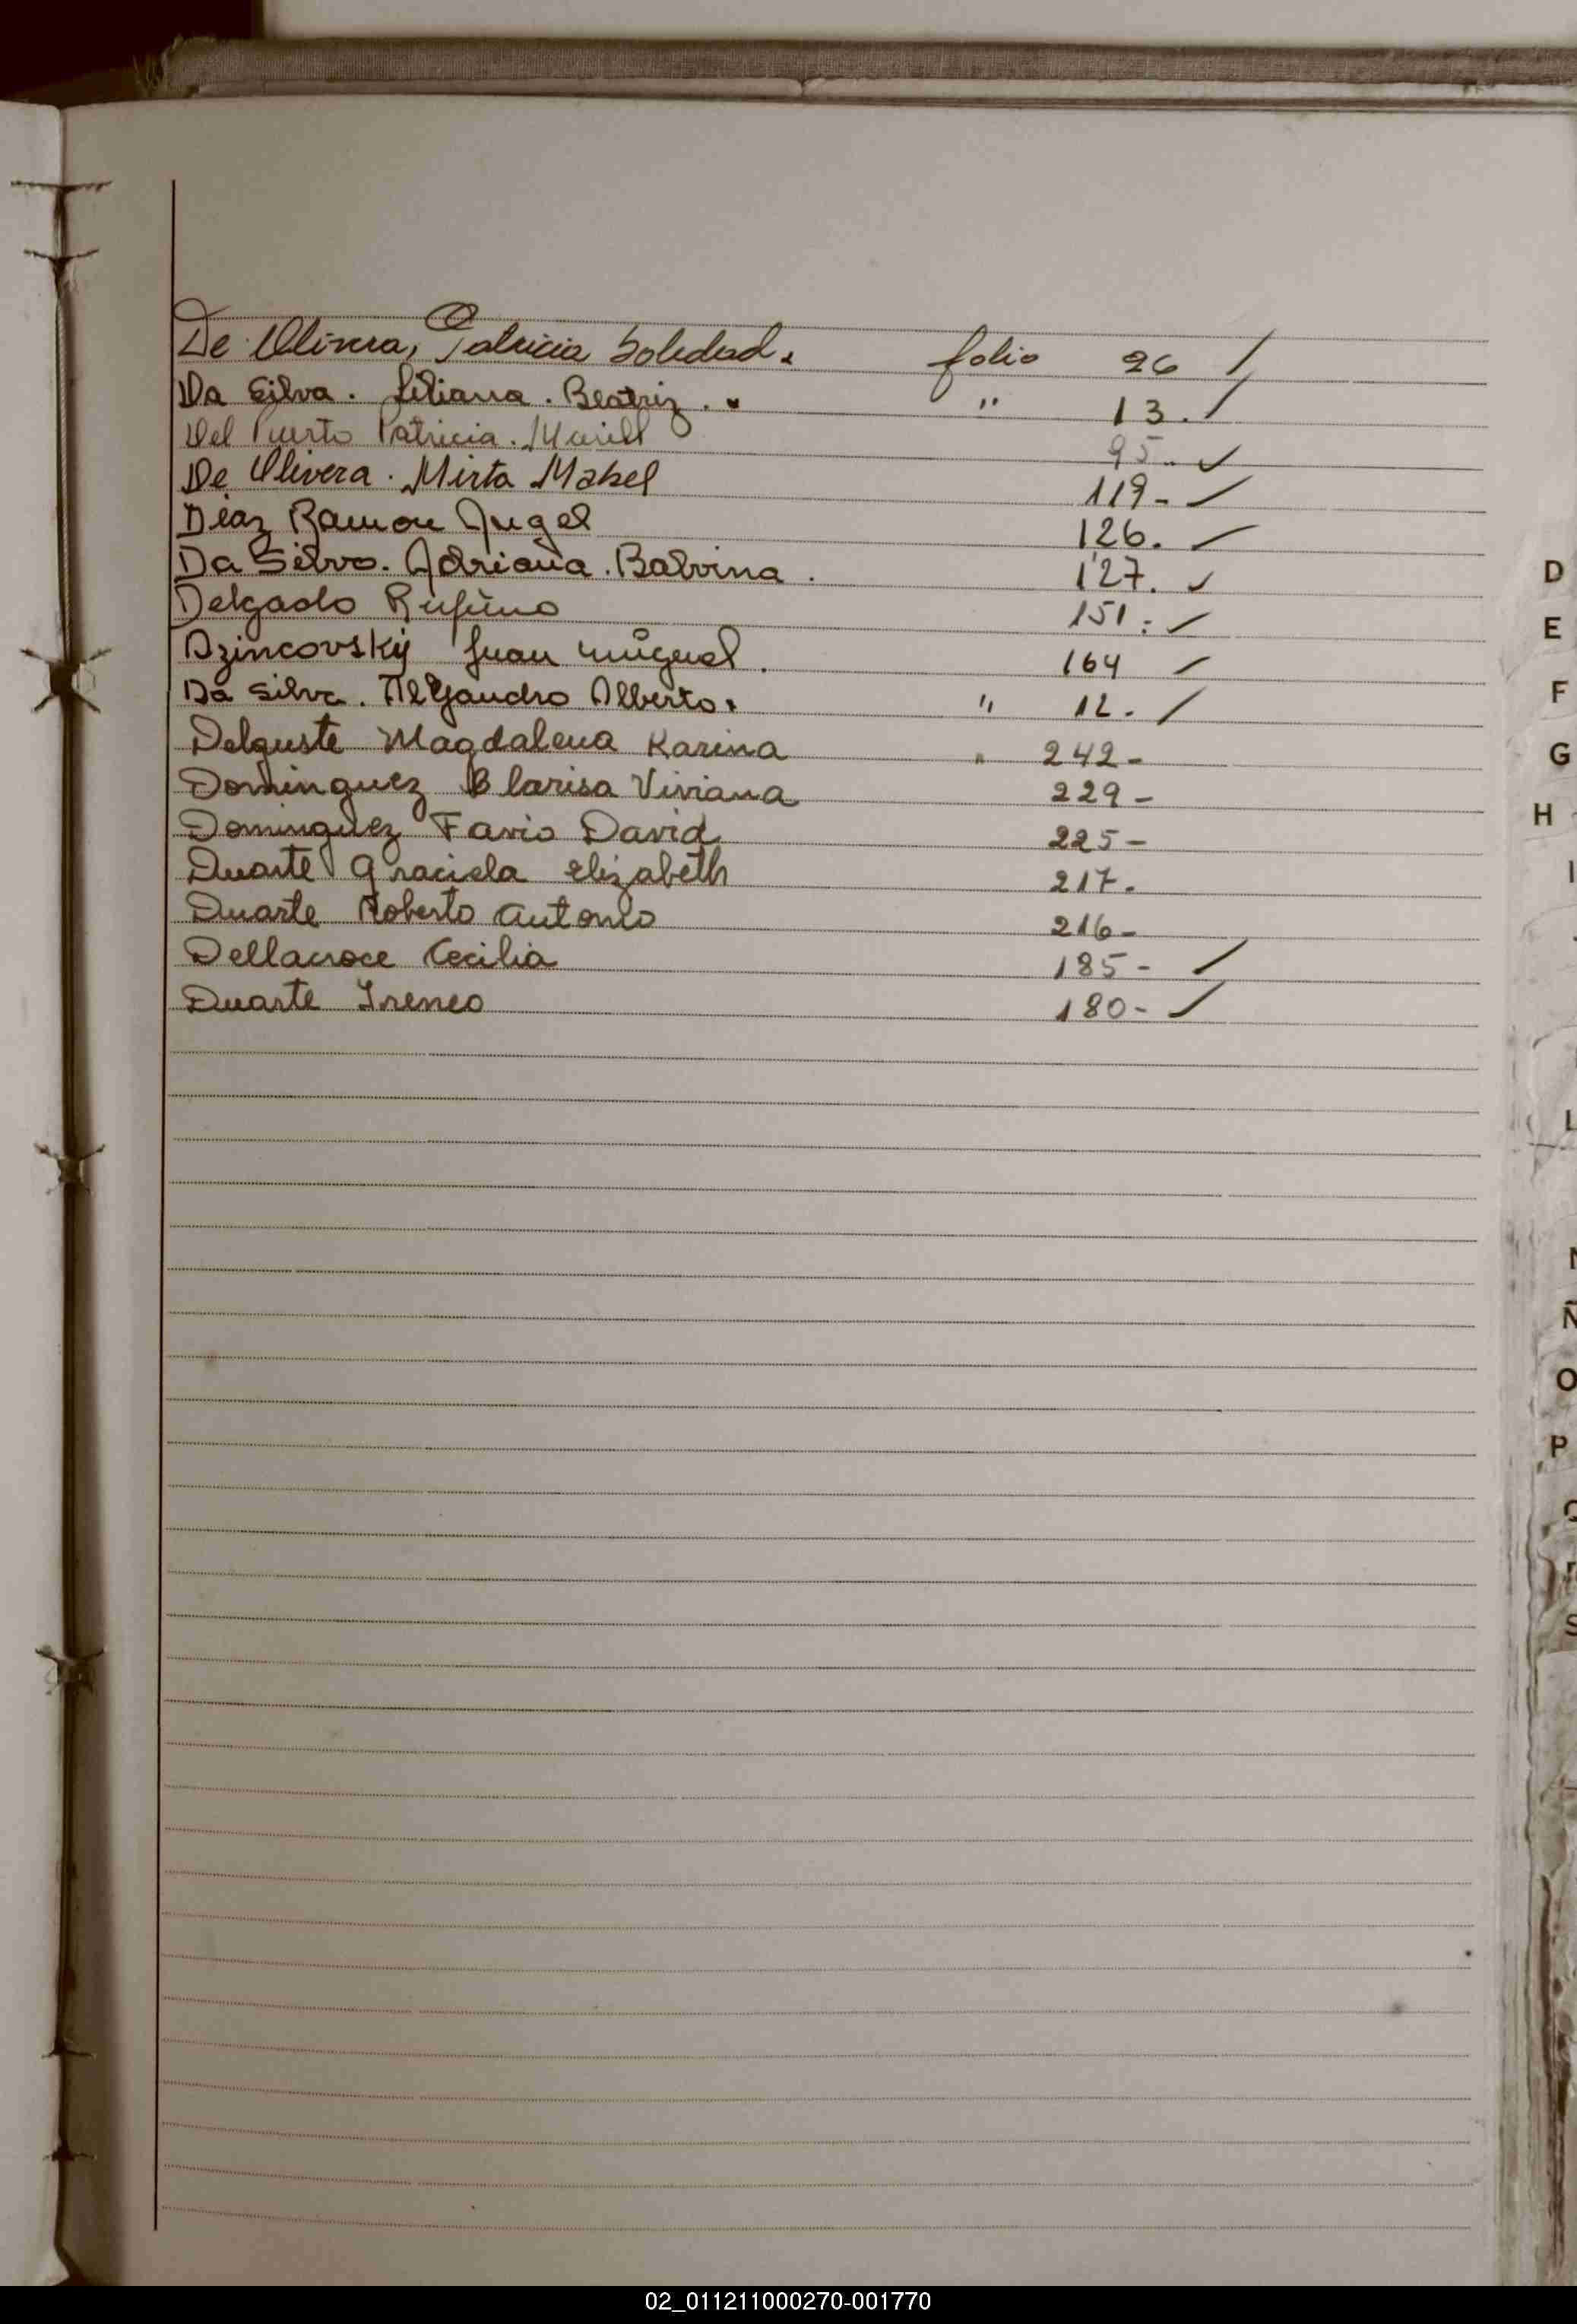 De Olivera, Patricia Soledad. folio 26 /
Da Silva. Liliana. Beatriz. " 13. /
Del Puerto Patricia. 95. ✓
De Olivera. Mirta Mabel 119- ✓
Diaz Ramon Angel 126. ✓
Da Silva. Adriana. Balvina. 127. ✓
Delgado Rufino 151. ✓
Dzincovskij Juan Miguel. 164 ✓
Da Silva. Alejandro Alberto. " 12. /
Delguste Magdalena Karina " 242-
Dominguez Clarisa Viviana 229-
Dominguez Favio David 225-
Duarte Graciela Elizabeth 217.
Duarte Roberto Antonio 216-
Dellacroce Cecilia 185- /
Duarte Ireneo 180- ✓
D
E
F
G
H
I
L
N
Ñ
O
P
Q
R
S
02_011211000270-001770